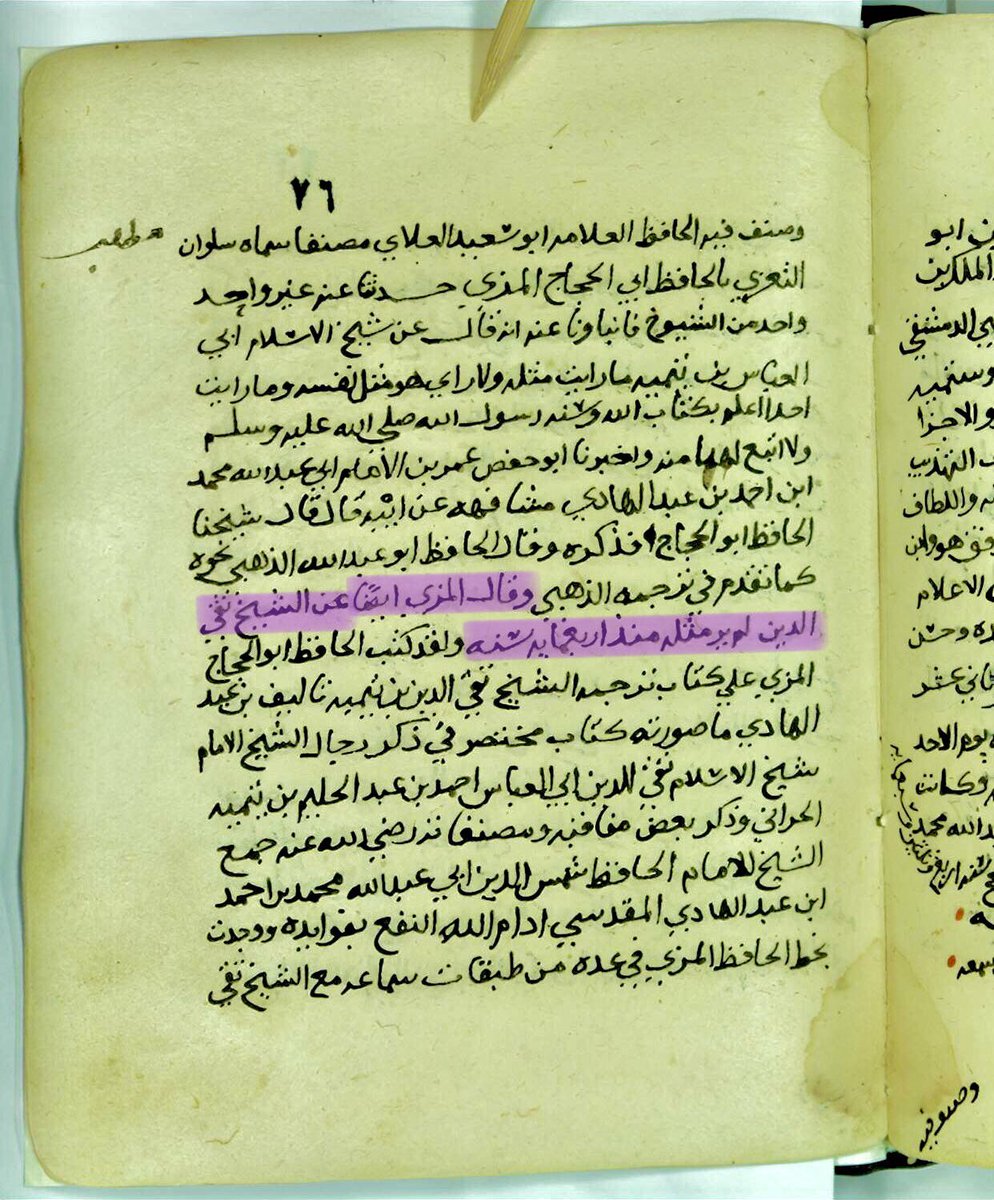 ٧٦
وصنف فيه الحافظ العلامه ابو سعيد العلاي مصنفا سماه سلوان
التعزي بالحافظ ابي الحجاج المزي حدثنا عنه غير واحد
واحد من الشيوخ فانباونا عنه انه قال عن شيخ الاسلام ابي
العباس بن تيميه مارايت مثله ولا راي هو مثل نفسه ومارايت
احدا اعلم بكتاب الله وسنه رسول الله صلي الله عليه وسلم
ولا اتبع لهما منه واخبرنا ابو حفص عمر بن الامام ابي عبد الله محمد
ابن احمد بن عبد الهادي مشافهه عن ابيه قال قال شيخنا
الحافظ ابو الحجاج فذكره وقال الحافظ ابو عبد الله الذهبي نحوه
كما تقدم في ترجمه الذهبي وقال المزي ايضا عن الشيخ تقي
الدين لم ير مثله منذ اربعمايه سنه ولقد كتب الحافظ ابو الحجاج
المزي علي كتاب ترجمه الشيخ تقي الدين بن تيميه تاليف بن عبد
الهادي ما صورته كتاب مختصر في ذكر رجال الشيخ الامام
شيخ الاسلام تقي الدين ابي العباس احمد بن عبد الحليم بن تيميه
الحراني وذكر بعض مناقبه ومصنفاته رضي الله عنه جمع
الشيخ الامام الحافظ شمس الدين ابي عبد الله محمد بن احمد
ابن عبد الهادي المقدسي ادام الله النفع بفوايده ووجدت
بخط الحافظ المزي في عده من طبقات سماعه مع الشيخ تقي
ابو
الملكين
الدمشقي
وستميه
والاجزا
التهذيب
واللطاف
هو وابن
الاعلام
وحسن
عشر
يوم الاحد
وكانت
الله محمد
وصنف فيه